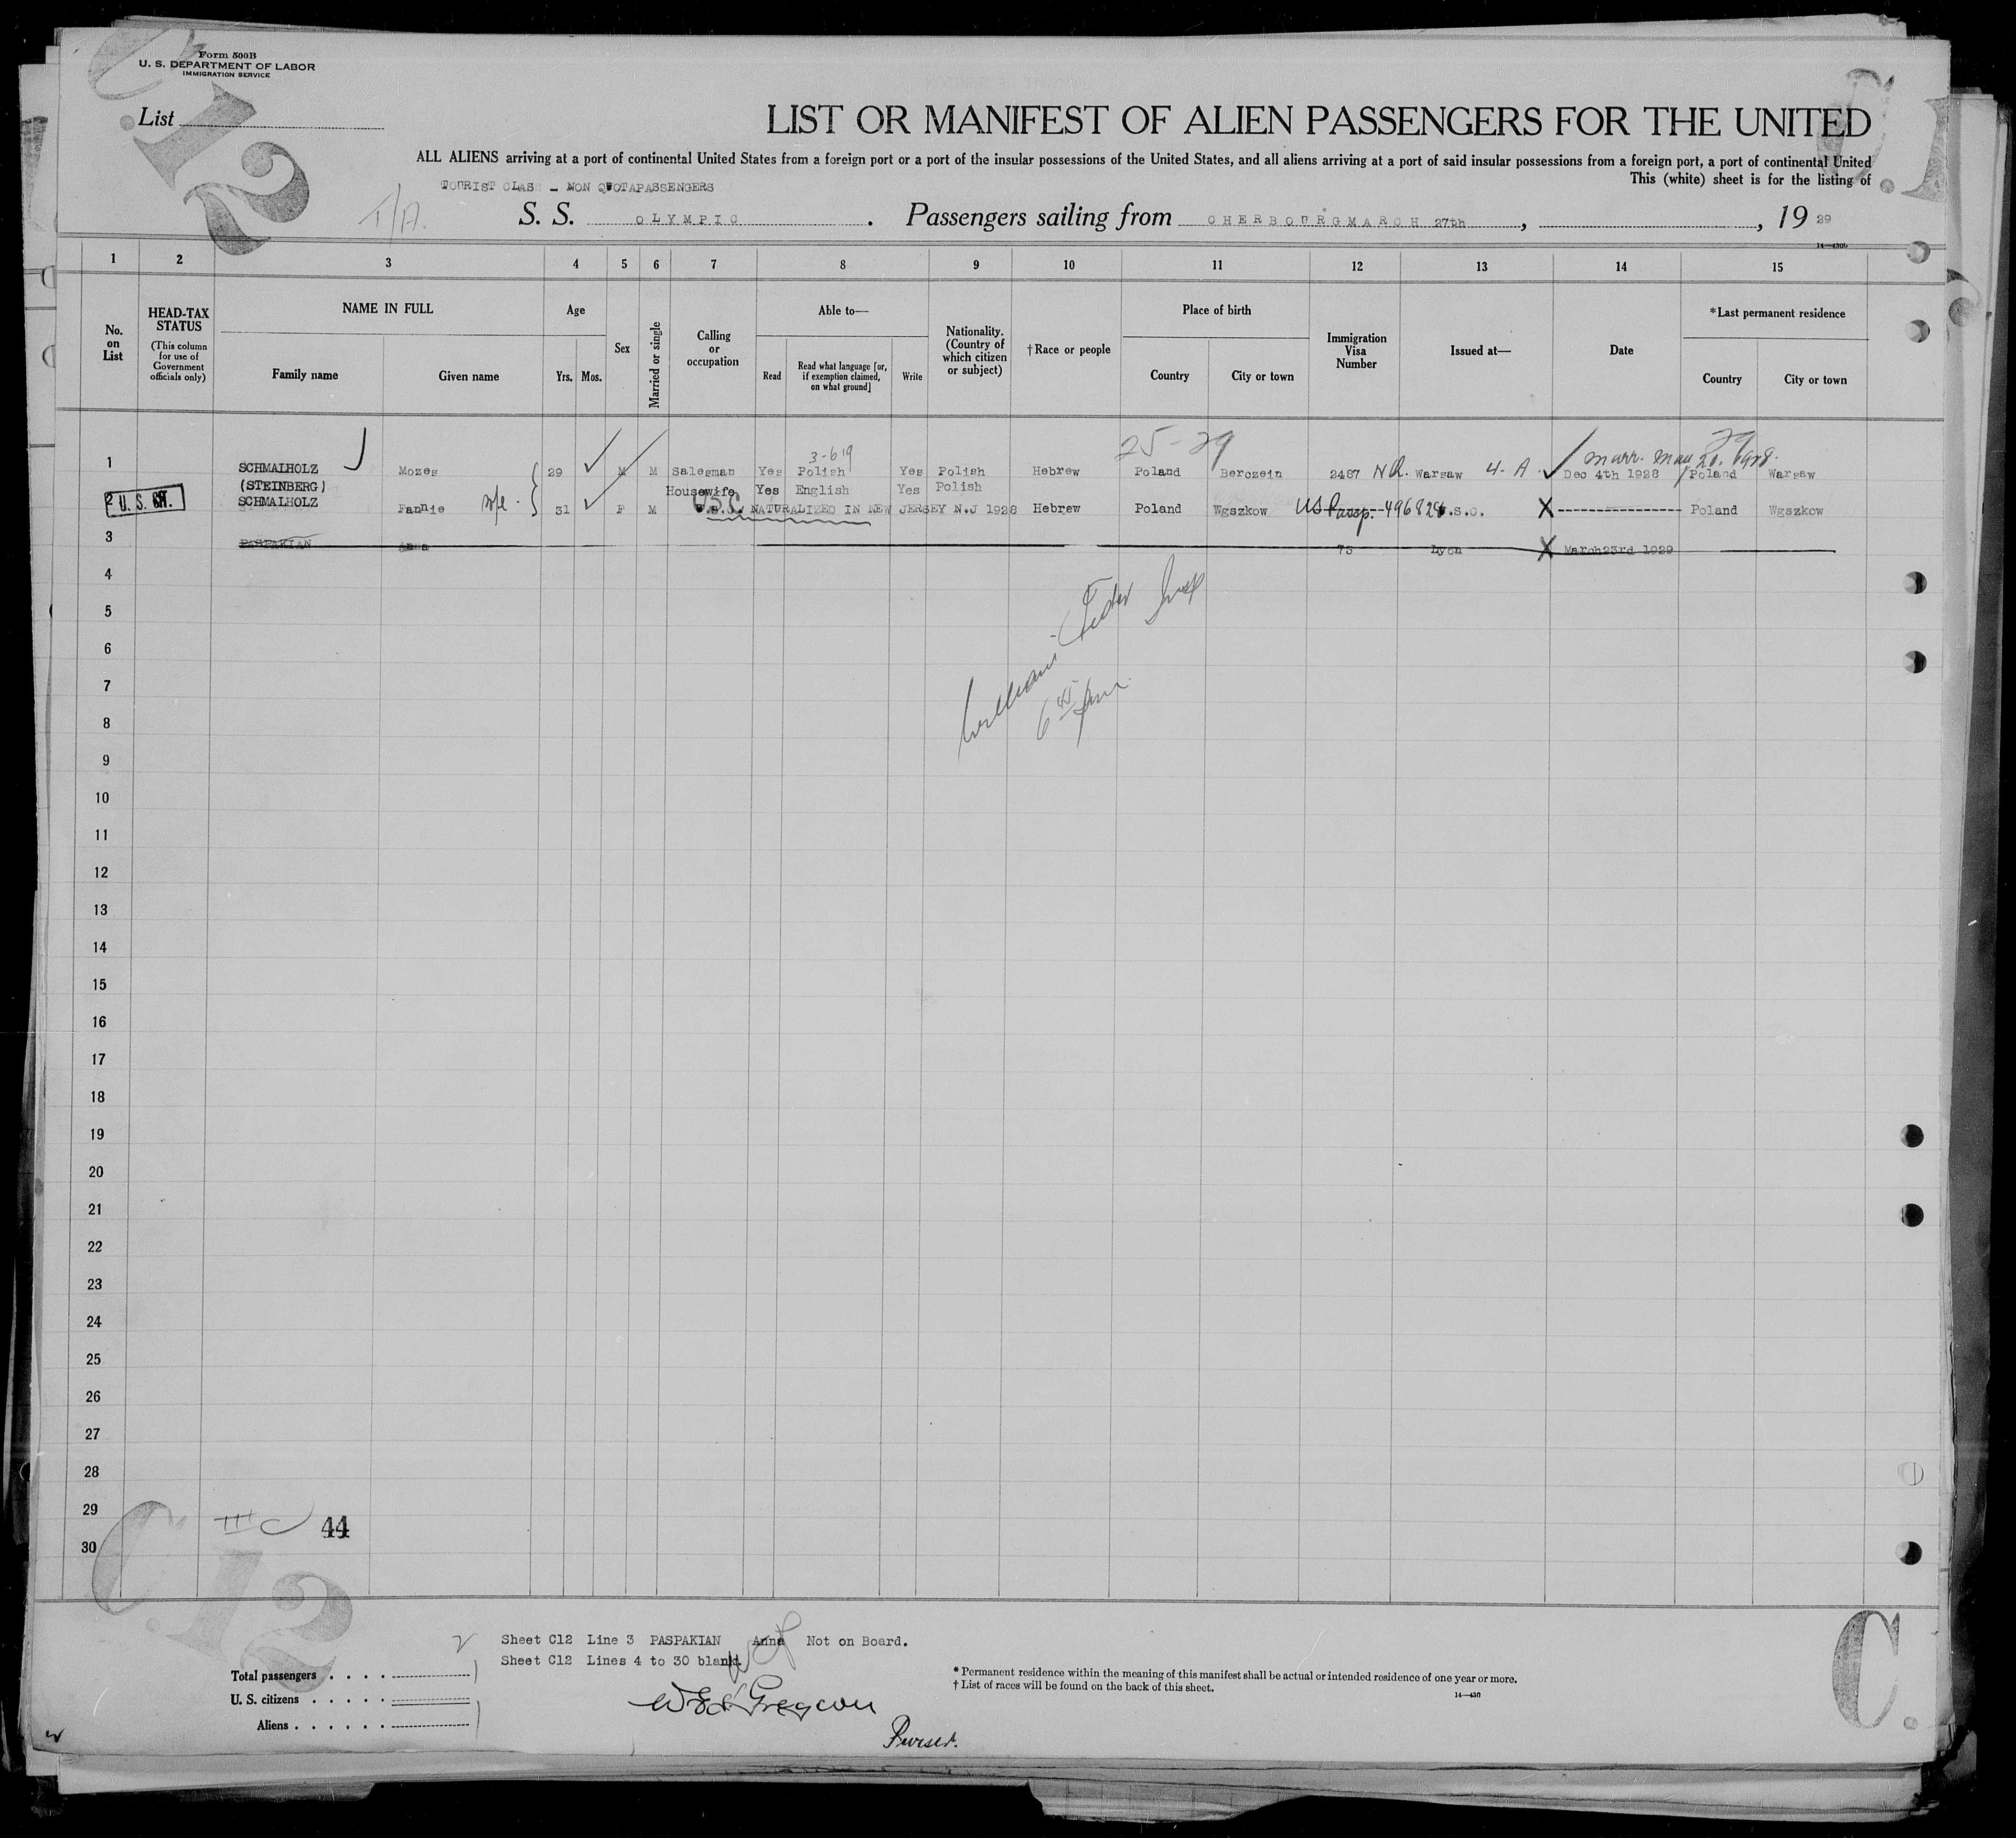 Form 500B
U. S. DEPARTMENT OF LABOR
IMMIGRATION SERVICE
C.12
List
LIST OR MANIFEST OF ALIEN PASSENGERS FOR THE UNITED
ALL ALIENS arriving at a port of continental United States from a foreign port or a port of the insular possessions of the United States, and all aliens arriving at a port of said insular possessions from a foreign port, a port of continental United
This (white) sheet is for the listing of
TOURIST CLASS - NON QUOTAPASSENGERS
T/A. S. S. OLYMPIC . Passengers sailing from CHERBOURGMARCH 27th , , 19 29
14—430b
1 2 3 4 5 6 7 8 9 10 11 12 13 14 15
No. on List
HEAD-TAX STATUS
(This column for use of Government officials only)
NAME IN FULL
Family name Given name
Age
Yrs. Mos.
Sex
Married or single
Calling or occupation
Able to—
Read
Read what language [or, if exemption claimed, on what ground]
Write
Nationality. (Country of which citizen or subject)
†Race or people
Place of birth
Country City or town
Immigration Visa Number
Issued at—
Date
*Last permanent residence
Country City or town
3-619 25-29 29
marr. may 20. 1928.
1 SCHMALHOLZ Mozes 29 M M Salesman Yes Polish Yes Polish Hebrew Poland Berczein 2487 NQ. Warsaw 4-A Dec 4th 1928 Poland Warsaw
(STEINBERG) Housewife Yes English Yes Polish
2 SCHMALHOLZ Fannie wife. 31 F M U.S.C. NATURALIZED IN NEW JERSEY N.J 1928 Hebrew Poland Wgszkow US Passp. X Poland Wgszkow
3 PASPAKIAN Anna 73 Lyon X March23rd 1929
4
5
6
7
8
9
10
11
12
13
14
15
16
17
18
19
20
21
22
23
24
25
26
27
28
29
30
William
645 pm
III C 44
C.12
C.
Sheet C12 Line 3 PASPAKIAN Anna Not on Board.
Sheet C12 Lines 4 to 30 blank.
Total passengers . . . .
U. S. citizens . . . . .
Aliens . . . . . .
* Permanent residence within the meaning of this manifest shall be actual or intended residence of one year or more.
† List of races will be found on the back of this sheet.
14—430
Purser.